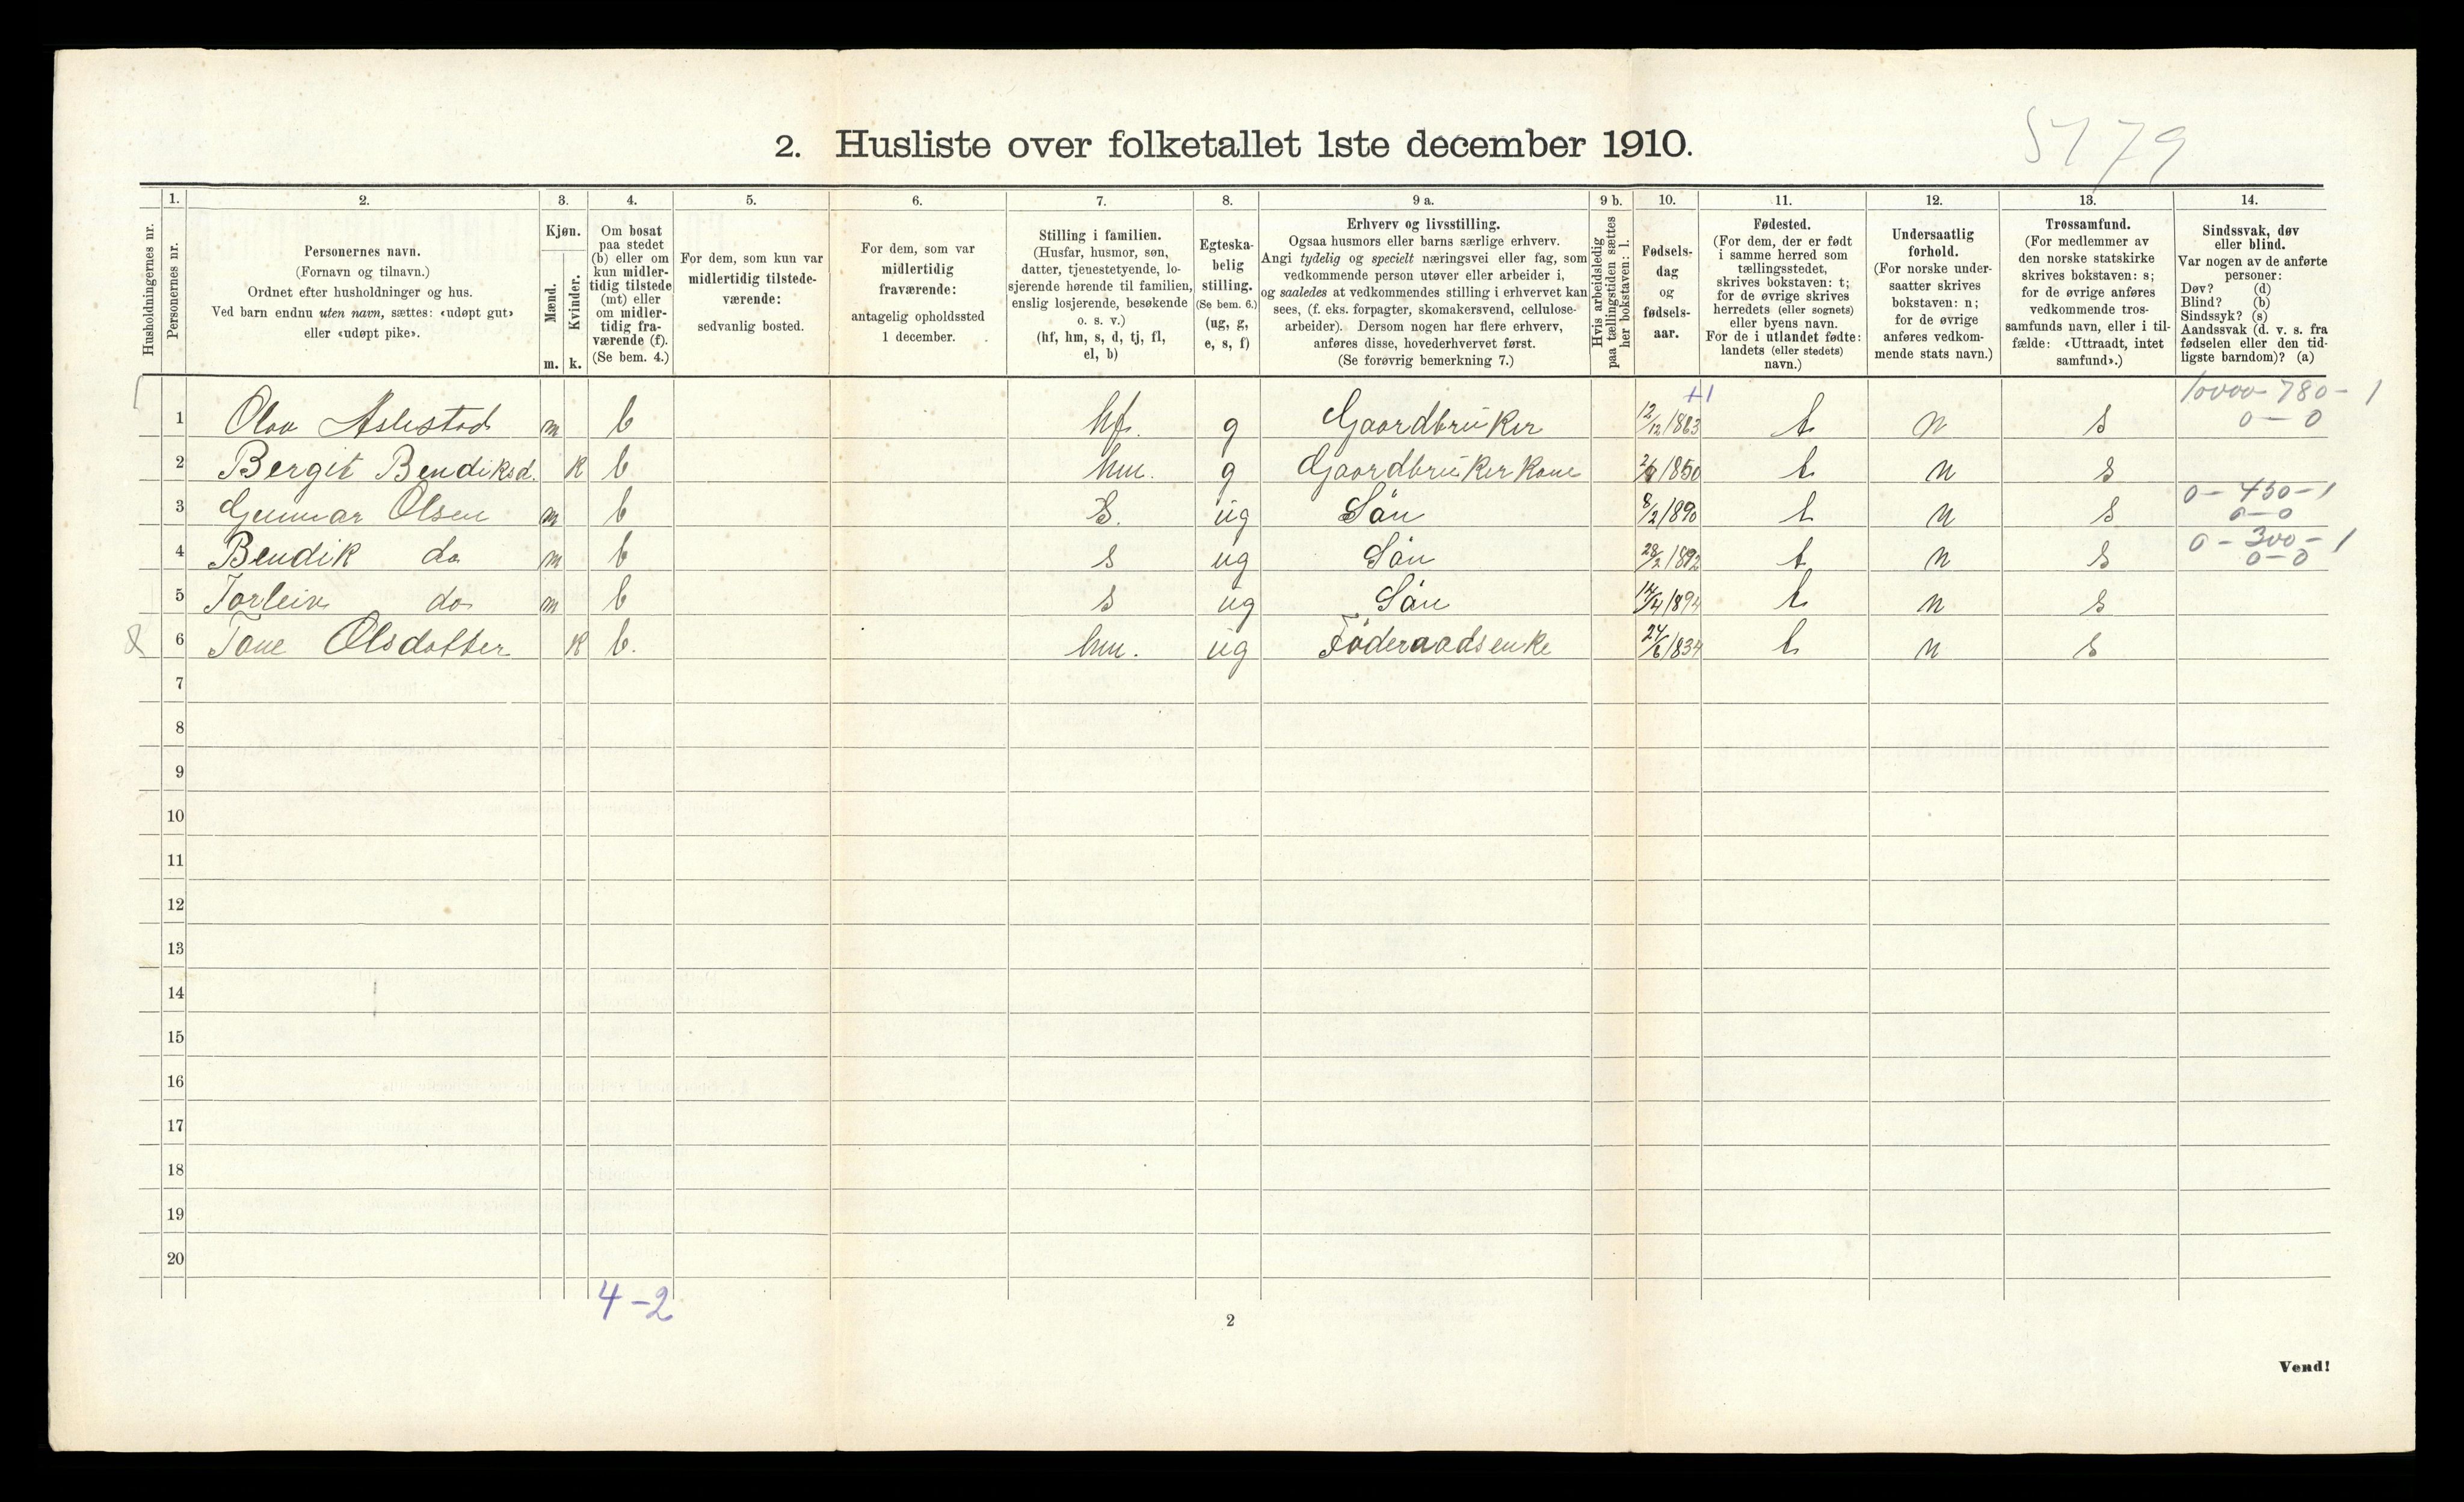 5779
2. Husliste over folketallet 1ste december 1910.
Husholdningernes nr.
1. Personernes nr.
2. Personernes navn.
(Fornavn og tilnavn.)
Ordnet efter husholdninger og hus.
Ved barn endnu uten navn, sættes: «udøpt gut»
eller «udøpt pike».
3. Kjøn.
Mænd. m.
Kvinder. k.
4. Om bosat
paa stedet
(b) eller om
kun midler-
tidig tilstede
(mt) eller
om midler-
tidig fra-
værende (f).
(Se bem. 4.)
5. For dem, som kun var
midlertidig tilstede-
værende:
sedvanlig bosted.
6. For dem, som var
midlertidig
fraværende:
antagelig opholdssted
1 december.
7. Stilling i familien.
(Husfar, husmor, søn,
datter, tjenestetyende, lo-
sjerende hørende til familien,
enslig losjerende, besøkende
o. s. v.)
(hf, hm, s, d, tj, fl,
el, b)
8. Egteska-
belig
stilling.
(Se bem. 6.)
(ug, g,
e, s, f)
9 a. Erhverv og livsstilling.
Ogsaa husmors eller barns særlige erhverv.
Angi tydelig og specielt næringsvei eller fag, som
vedkommende person utøver eller arbeider i,
og saaledes at vedkommendes stilling i erhvervet kan
sees, (f. eks. forpagter, skomakersvend, cellulose-
arbeider). Dersom nogen har flere erhverv,
anføres disse, hovederhvervet først.
(Se forøvrig bemerkning 7.)
9 b. Hvis arbeidsledig
paa tællingstiden sættes
her bokstaven: l.
10. Fødsels-
dag
og
fødsels-
aar.
11. Fødested.
(For dem, der er født
i samme herred som
tællingsstedet,
skrives bokstaven: t;
for de øvrige skrives
herredets (eller sognets)
eller byens navn.
For de i utlandet fødte:
landets (eller stedets)
navn.)
12. Undersaatlig
forhold.
(For norske under-
saatter skrives
bokstaven: n;
for de øvrige
anføres vedkom-
mende stats navn.)
13. Trossamfund.
(For medlemmer av
den norske statskirke
skrives bokstaven: s;
for de øvrige anføres
vedkommende tros-
samfunds navn, eller i til-
fælde: «Uttraadt, intet
samfund».)
14. Sindssvak, døv
eller blind.
Var nogen av de anførte
personer:
Døv? (d)
Blind? (b)
Sindssyk? (s)
Aandssvak (d. v. s. fra
fødselen eller den tid-
ligste barndom)? (a)
10000-780-1
1 Olav Aslestad m b hf. g Gaardbruker 12/12 1863 t n s 0-0
2 Bergit Bendiksd. k b hm. g Gaardbrukerkone 1850 t n s
0-450-1
3 Gunnar Olsen m b S. ug Sön 8/2 1890 t n s 0-0
0-300-1
4 Bendik do m b s ug Sön 28/2 1892 t n s 0-0
5 Torleiv do m b s ug Sön 14/4 1894 t n s
6 Tone Olsdotter k b. hm. ug Föderaadsenke 24/6 1834 t n s
7
8
9
10
11
12
13
14
15
16
17
18
19
20
4-2
2
Vend!